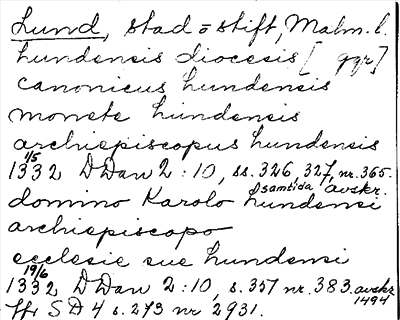 Lund, stad o stift, Malm. l.
lundensis diocesis [ ggr]
canonicus lundensis
monete lundensis
archiepiscopus lundensis
1332 1/5 DDan 2:10, ss. 326, 327, nr. 365. samtida avskr.
domino Karolo lundensi
archiepiscopo
ecclesie sue lundensi
1332 19/6 DDan 2:10, s. 357 nr. 383. avskr 1494
jfr SD 4 s. 273 nr 2931.